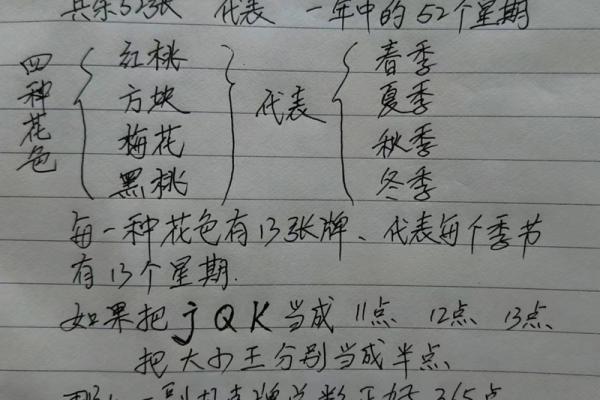 共乐52张 代表 一年中的52个星期
四种花色
红桃
方块
梅花
黑桃
代表
春季
夏季
秋季
冬季
每一种花色有13张牌、代表每个季节
有13个星期.
如果把 j Q K 当成 11点 12点 13点、
把大小王分别当成半点、
一副扑克牌总数正好365点